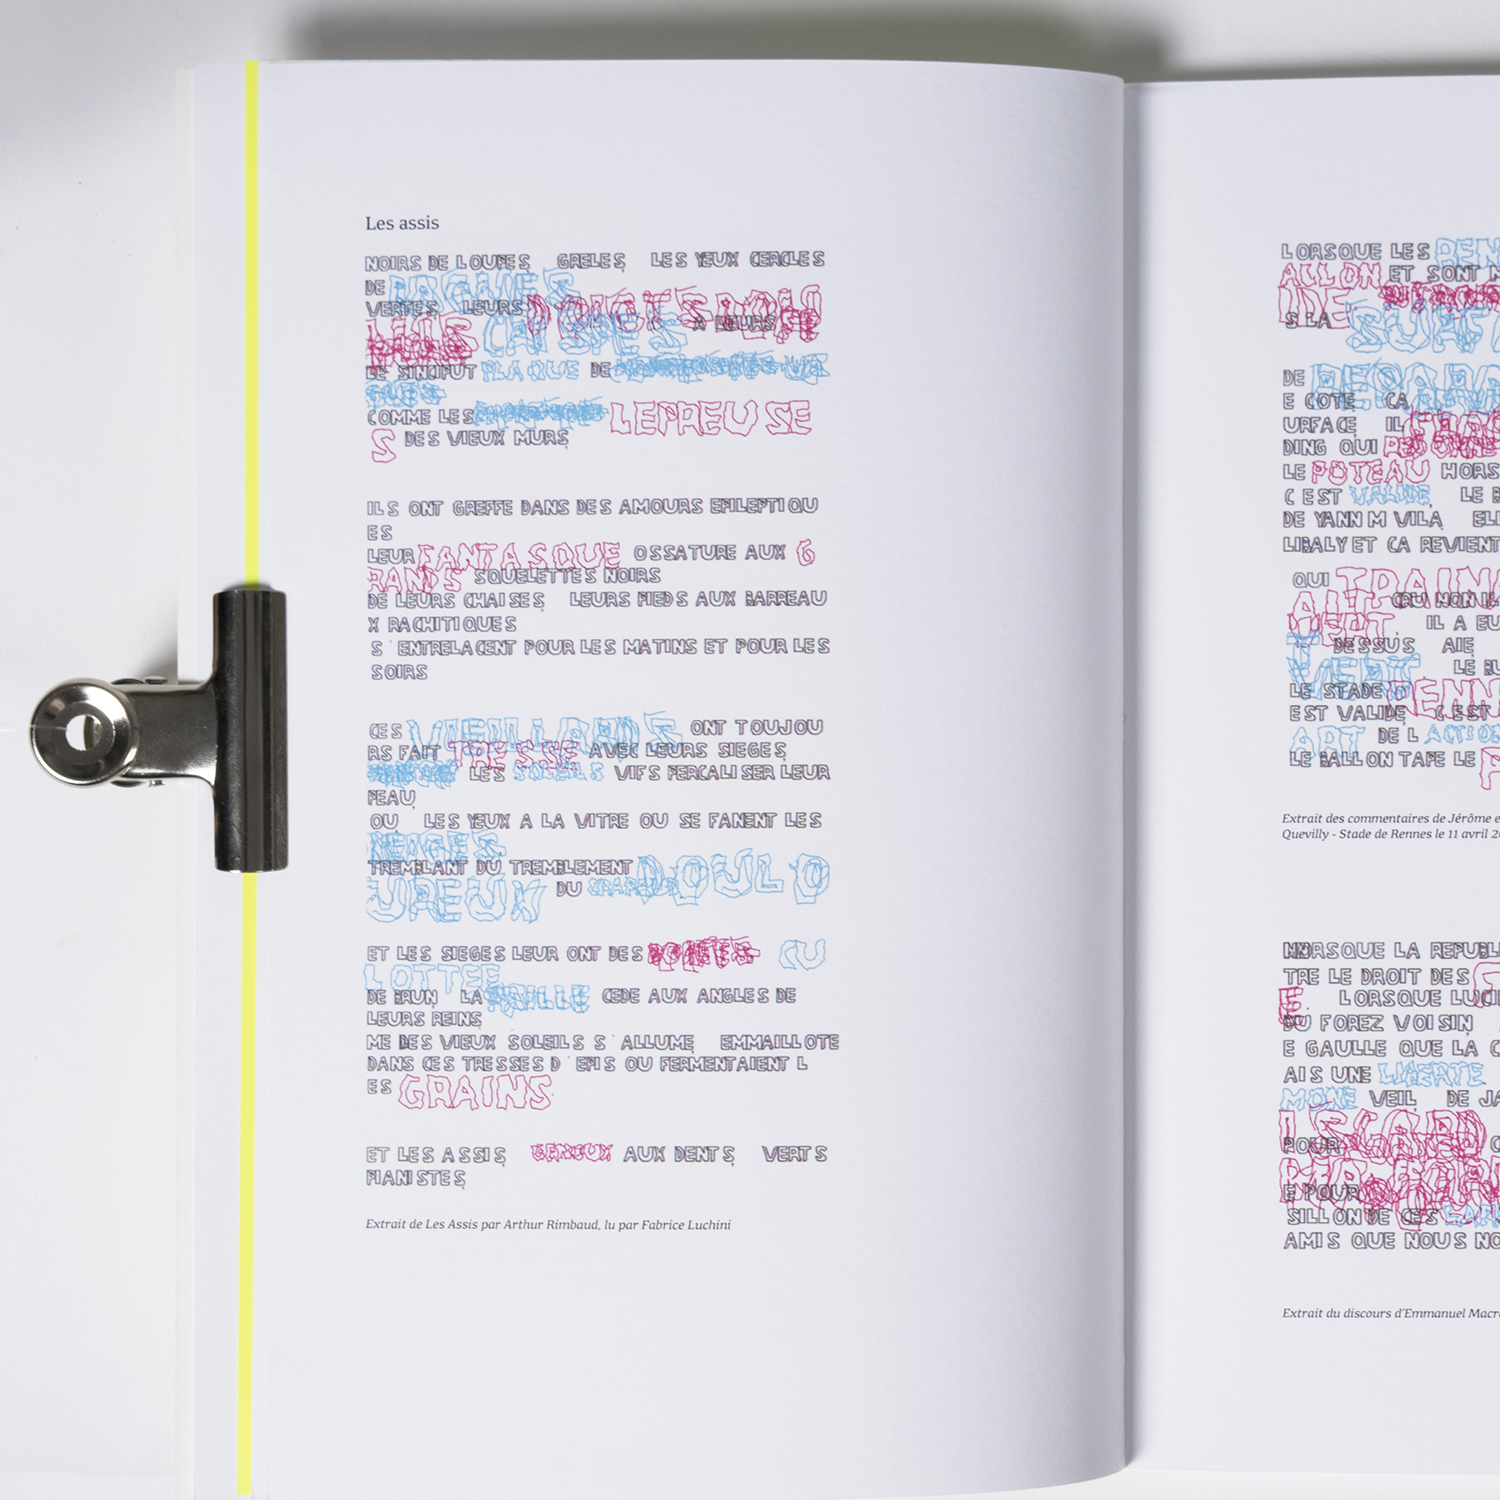 Les assis
NOIRS DE LOUPES, GRELES, LES YEUX CERCLES
DE BAGUES
VERTES, LEURS DOIGTS BOU
LUS CRISPES A LEURS
LE SINCIPUT PLAQUE DE
COMME LES LEPREUSE
S DES VIEUX MURS,
ILS ONT GREFFE DANS DES AMOURS EPILEPTIQU
ES
LEUR FANTASQUE OSSATURE AUX G
RANDS SQUELETTES NOIRS
DE LEURS CHAISES, LEURS PIEDS AUX BARREAU
X RACHITIQUES
S'ENTRELACENT POUR LES MATINS ET POUR LES
SOIRS
CES VIEILLARDS ONT TOUJOU
RS FAIT TRESSE AVEC LEURS SIEGES,
LES SOLEILS VIFS PERCALISER LEUR
PEAU,
OU, LES YEUX A LA VITRE OU SE FANENT LES
NEIGES
TREMBLANT DU TREMBLEMENT DOULO
UREUX DU CRAPAUD
ET LES SIEGES LEUR ONT DES BONTES, CU
LOTTEE
DE BRUN, LA PAILLE CEDE AUX ANGLES DE
LEURS REINS,
ME DES VIEUX SOLEILS S'ALLUME, EMMAILLOTE
DANS CES TRESSES D'EPIS OU FERMENTAIENT L
ES GRAINS
ET LES ASSIS, GENOUX AUX DENTS, VERTS
PIANISTES,
Extrait de Les Assis par Arthur Rimbaud, lu par Fabrice Luchini
LORSQUE LES
ALLON ET SONT
IDE
S LA SURF
DE
E COTE, CA
URFACE, IL
DING QUI
LE POTEAU HORS
C EST VALIDE, LE
DE YANN M VILA, ELL
LIBALY ET CA REVIENT
QUI TRAIN
OUI NON IL
IL A EU
DESSUS, AIE,
VERT, LE BU
LE STADE RENN
EST VALIDE, C EST
ART, DE L ACTION
LE BALLON TAPE LE
Extrait des commentaires de Jérôme e
Quevilly - Stade de Rennes le 11 avril 2
LORSQUE LA REPUBL
TRE LE DROIT DES
E, LORSQUE LUCI
DU FOREZ VOISIN,
E GAULLE QUE LA C
AIS UNE LIBERTE,
MONE VEIL, DE JA
POUR
E POUR
SILLON DE CES
AMIS QUE NOUS NO
Extrait du discours d'Emmanuel Macr